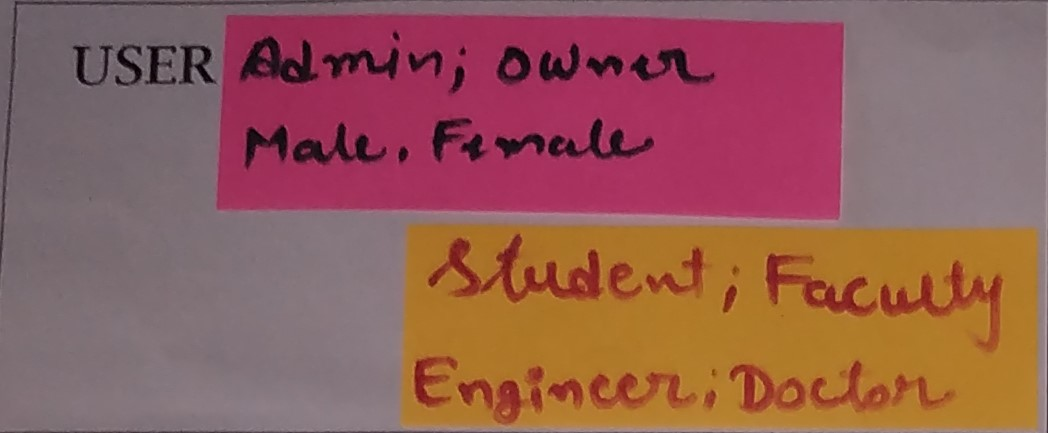 USER Admin; Owner
Male. Female
Student; Faculty
Engineer; Doctor